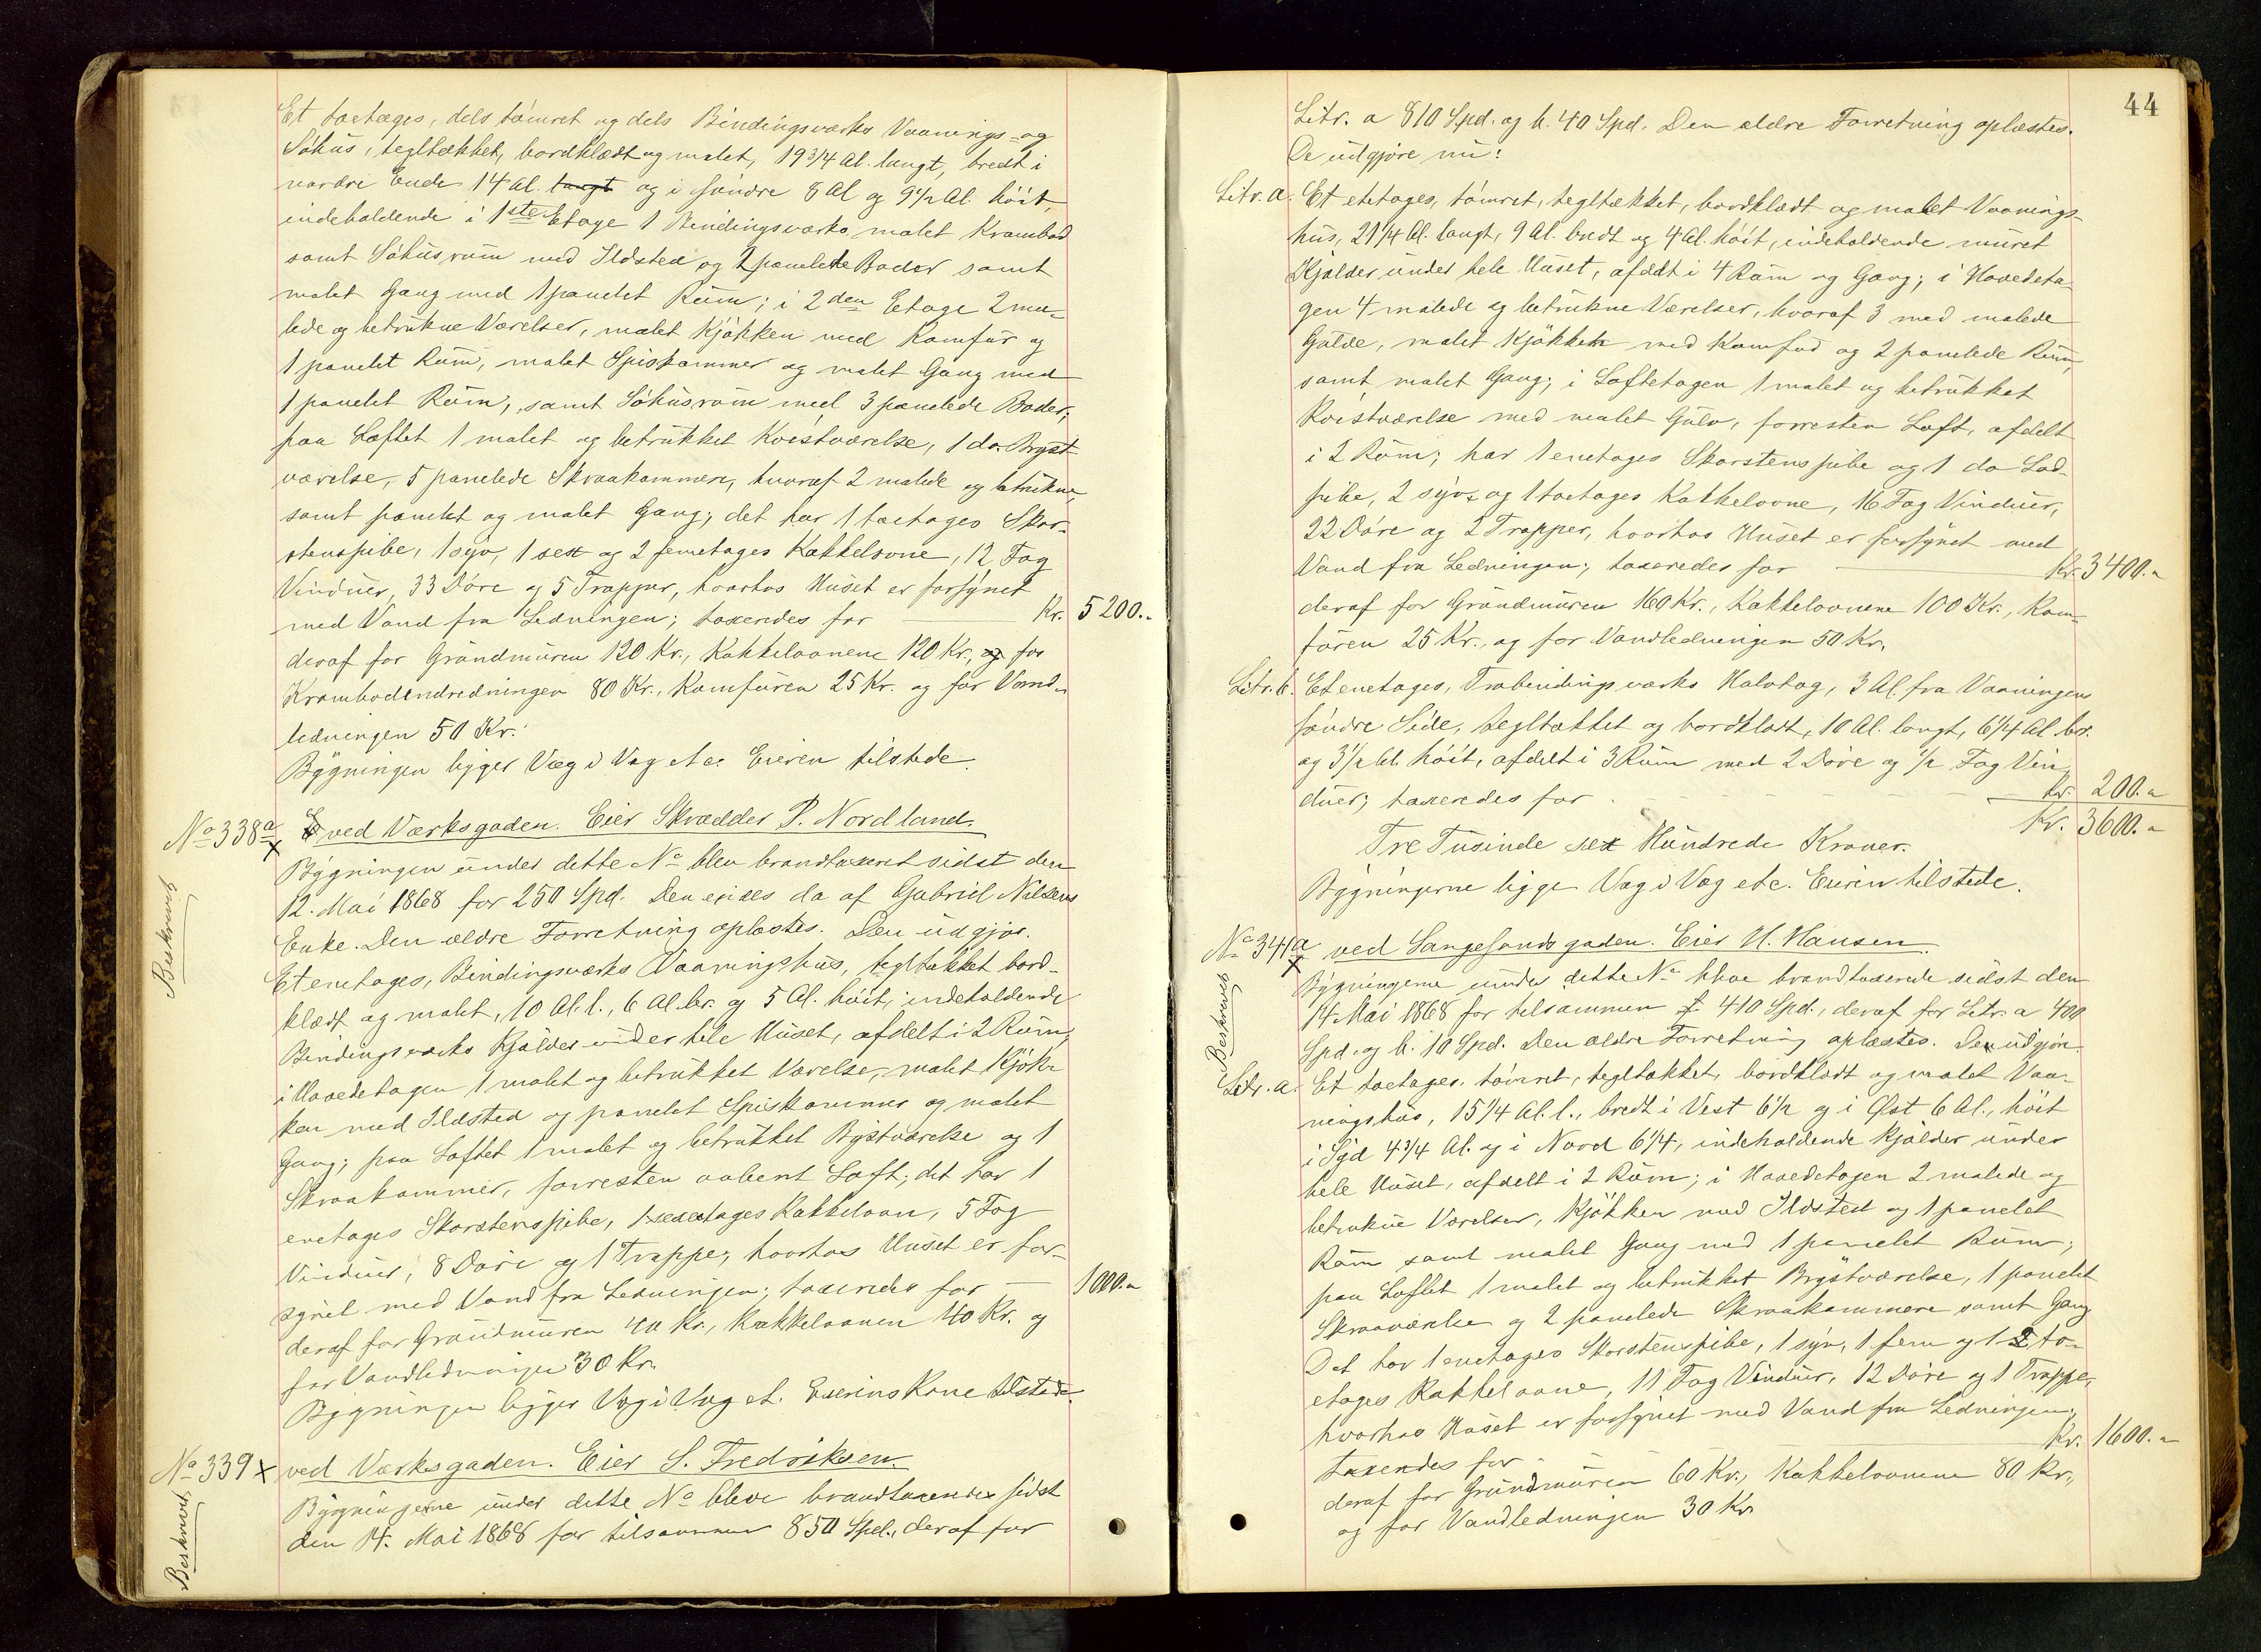 Et toetages, dels tömret og dels Bindingsværks Vaanings- og
Söhus, tegltækket, bordklædt og malet, 19 3/4 Al. langt, bredt i
nordre Ende 14 Al. langt og i söndre 8 Al og 9 1/2 Al. höit,
indeholdende i 1ste Etage 1 Bindingsværks malet Krambod
samt Söhusrum med Ildsted og 2 panelede Boder samt
malet Gang med 1 panelet Rum; i 2den Etage 2 ma-
lede og betrukne Værelser, malet Kjökken med Komfur og
1 panelet Rum, malet Spiskammer og malet Gang med
1 panelet Rum, samt Söhusrum med 3 panelede Boder;
paa Loftet 1 malet og betrukket Kvistværelse, 1 do. Bryst-
værelse, 5 panelede Skraakammere, hvoraf 2 malede og betrukne,
samt panelet og malet Gang; det har 1 toetages Skor-
stenspibe, 1 syv, 1 sex og 2 femetages Kakkelovne, 12 Fag
Vinduer, 33 Döre og 5 Trapper, hvorhos Huset er forsynet
med Vand fra Ledningen; taxeredes for Kr. 5200.-
deraf for Grundmuren 120 Kr., Kakkelovnene 120 Kr., og for
Krambodindredningen 80 Kr., Komfuren 25 Kr. og for Vand-
ledningen 50 Kr.
Bygningen ligger Væg i Væg etc. Eieren tilstede.
No 338a x ved Værksgaden. Eier Skrædder P. Nordland.
Beskrevet
Bygningen under dette No blev brandtaxeret sidst den
12. Mai 1868 for 250 Spd. Den eides da af Gabriel Nilsens
Enke. Den ældre Forretning oplæstes. Den udgjör.
Et enetages, Bindingsværks Vaaningshus, tegltækket bord-
klædt og malet, 10 Al. l., 6 Al. br. og 5 Al. höit, indeholdende
Bindingsværks Kjælder under hele Huset, afdelt i 2 Rum,
i Hovedetagen 1 malet og betrukket Værelse, malet Kjök-
ken med Ildsted og panelet Spiskammer og malet
Gang; paa Loftet 1 malet og betrukket Brystværelse og 1
Skraakammer, forresten aabent Loft; det har 1
enetages Skorstenspibe, 1 sexetages Kakkelovn, 5 Fag
Vinduer, 8 Döre og 1 Trappe; hvorhos Huset er for-
synet med Vand fra Ledningen; taxeredes for 1000.-
deraf for Grundmuren 40 Kr., Kakkelovnen 40 Kr. og
for Vandledningen 30 Kr.
Bygningen ligger Væg i Væg et. Eierens Kone tilstede.
No 339 x ved Værksgaden. Eier S. Fredriksen.
Beskrevet
Bygningerne under dette No bleve brandtaxerede sidst
den 14. Mai 1868 for tilsammen 850 Spd., deraf for
44
Litr. a 810 Spd. og b. 40 Spd. Den ældre Forretning oplæstes.
De udgjöre nu:
Litr. a. Et etetages, tömret, tegltækket, bordklædt og malet Vaanings-
hus, 21 1/4 Al. langt, 9 Al. bredt og 4 Al. höit, indeholdende muret
Kjælder under hele Huset, afdelt i 4 Rum og Gang; i Hovedeta-
gen 4 malede og betrukne Værelser, hvoraf 3 med malede
Gulve, malet Kjökken med Komfur og 2 panelede Rum,
samt malet Gang; i Loftetagen 1 malet og betrukket
Kvistværelse med malet Gulv, forresten Loft, afdelt
i 2 Rum; har 1 enetages Skorstenspibe og 1 do Lod-
pibe, 2 syv- og 1 toetages Kakkelovne, 16 Fag Vinduer,
22 Döre og 2 Trapper, hvorhos Huset er forsynet med
Vand fra Ledningen; taxeredes for Kr. 3400.-
deraf for Grundmuren 160 Kr., Kakkelovnene 100 Kr., Kom-
furen 25 Kr. og for Vandledningen 50 Kr.
Litr. b. Et enetages, Træbindingsværks Halvtag, 3 Al. fra Vaaningens
söndre Side, tegltækket og bordklædt, 10 Al. langt, 6 1/4 Al. br.
og 3 1/2 Al. höit, afdelt i 3 Rum med 2 Döre og 1/2 Fag Vin-
duer; taxeredes for Kr. 200.-
Kr. 3600.-
Tre Tusinde sex Hundrede Kroner.
Bygningerne ligge Væg i Væg etc. Eieren tilstede.
No 341a x ved Langesundsgaden. Eier H. Hansen.
Beskrevet
Bygningerne under dette No bleve brandtaxerede sidst den
14 Mai 1868 for tilsammen 410 Spd., deraf for Litr. a 400
Spd. og b. 10 Spd. Den ældre Forretning oplæstes. De udgjör.
Litr. a. Et toetages, tömret, tegltækket, bordklædt og malet Vaa-
ningshus, 15 1/4 Al. l., bredt i Vest 6 1/2 og i Øst 6 Al., höit
i Syd 4 3/4 Al. og i Nord 6 1/4, indeholdende Kjælder under
hele Huset, afdelt i 2 Rum; i Hovedetagen 2 malede og
betrukne Værelser, Kjökken med Ildsted og 1 panelet
Rum samt malet Gang med 1 panelet Rum;
paa Loftet 1 malet og betrukket Brystværelse, 1 panelet
Skraaværelse og 2 panelede Skraakammere samt Gang
Det har 1 enetages Skorstenspibe, 1 syv, 1 fem og 1 to-
etages Kakkelovne, 11 Fag Vinduer, 12 Döre og 1 Trappe,
hvorhos Huset er forsynet med Vand fra Ledningen,
taxeredes for Kr. 1600.-
deraf for Grundmuren 60 Kr., Kakkelovnene 80 Kr.,
og for Vandledningen 30 Kr.